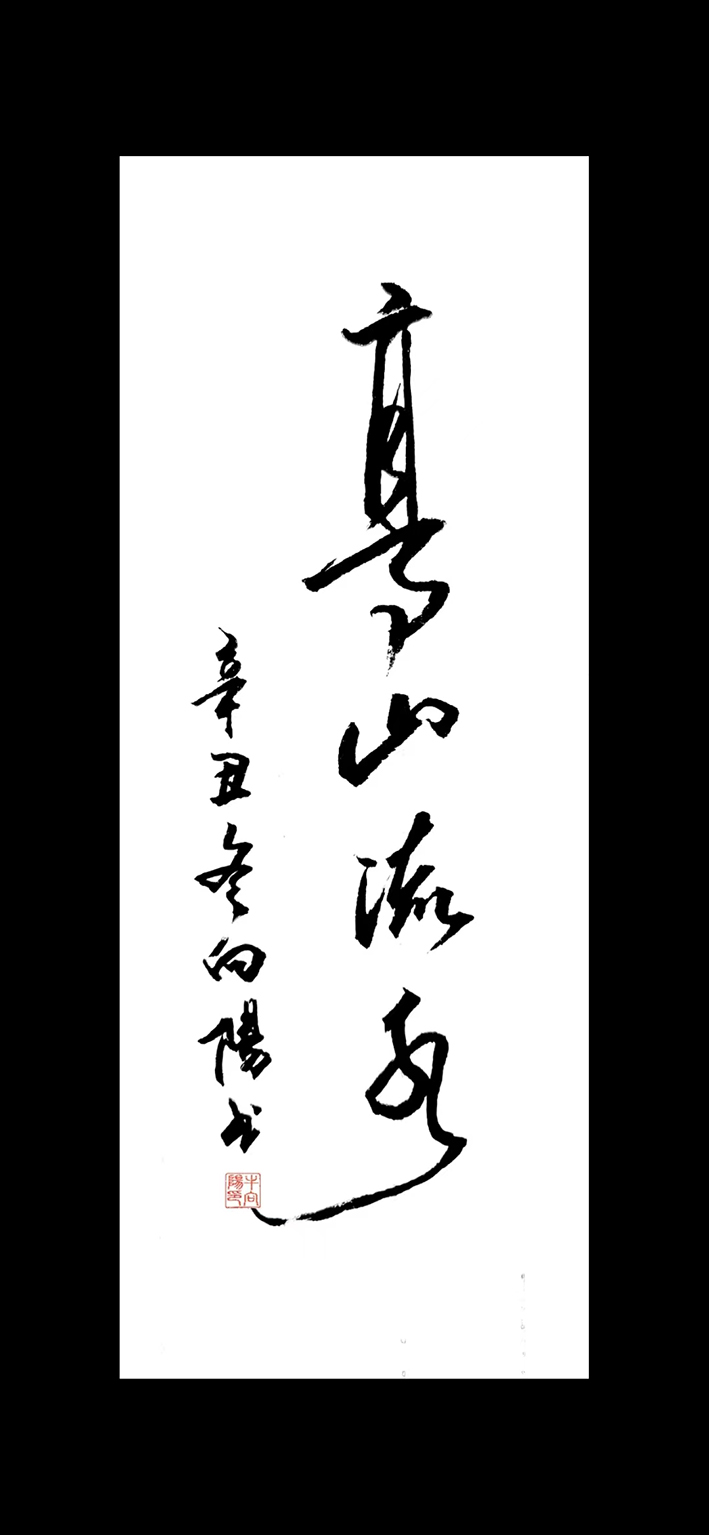 高山流水
辛丑冬向陽书
牛向陽印